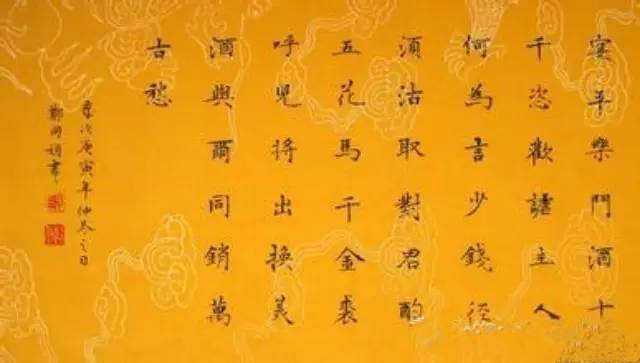 宴平樂鬥酒十
千恣歡謔主人
何為言少錢徑
須沽取對君酌
五花馬千金裘
呼兒將出換美
酒與爾同銷萬
古愁
歲次庚寅年仲冬之日
鄭書